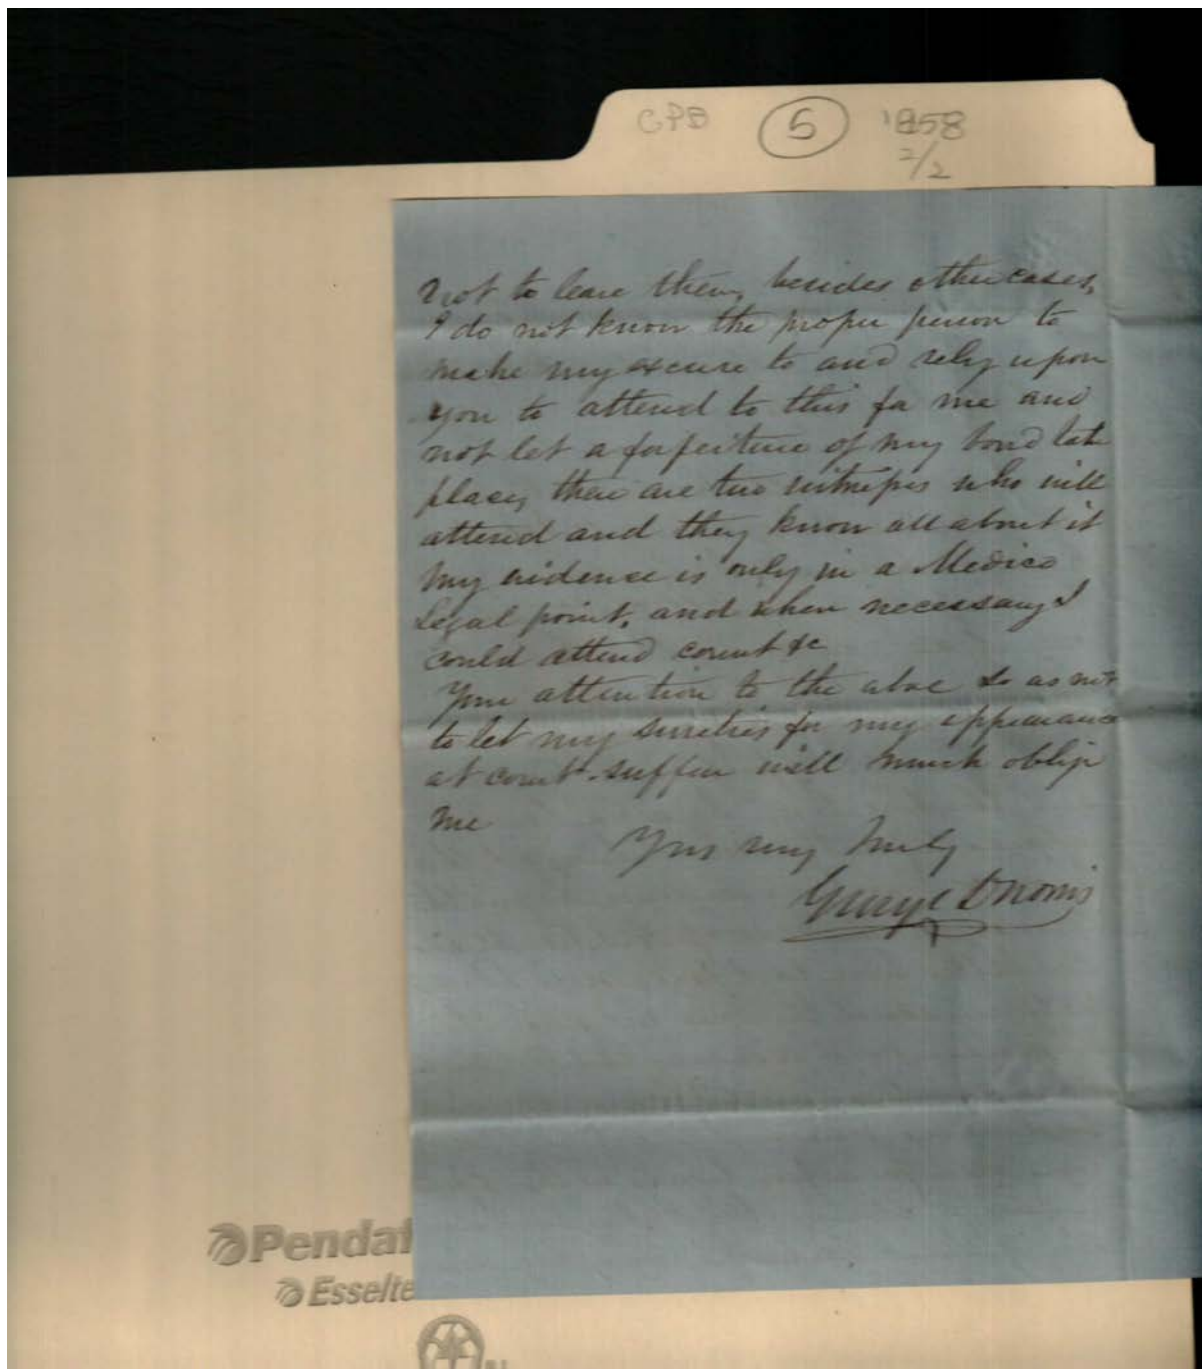 CPB 5 1858
2/2
not to leave them, besides other cases,
I do not know the proper person to
make my excuse to and rely upon
you to attend to this for me and
not let a forfeiture of my bond take
place, there are two witnesses who will
attend and they know all about it
my evidence is only in a Medico
Legal point, and when necessary I
could attend court &c
Your attention to the above so as not
to let my sureties for my appearance
at court suffer will much oblige
me
Yours very truly
George D Norris
Pendaf
Esselte